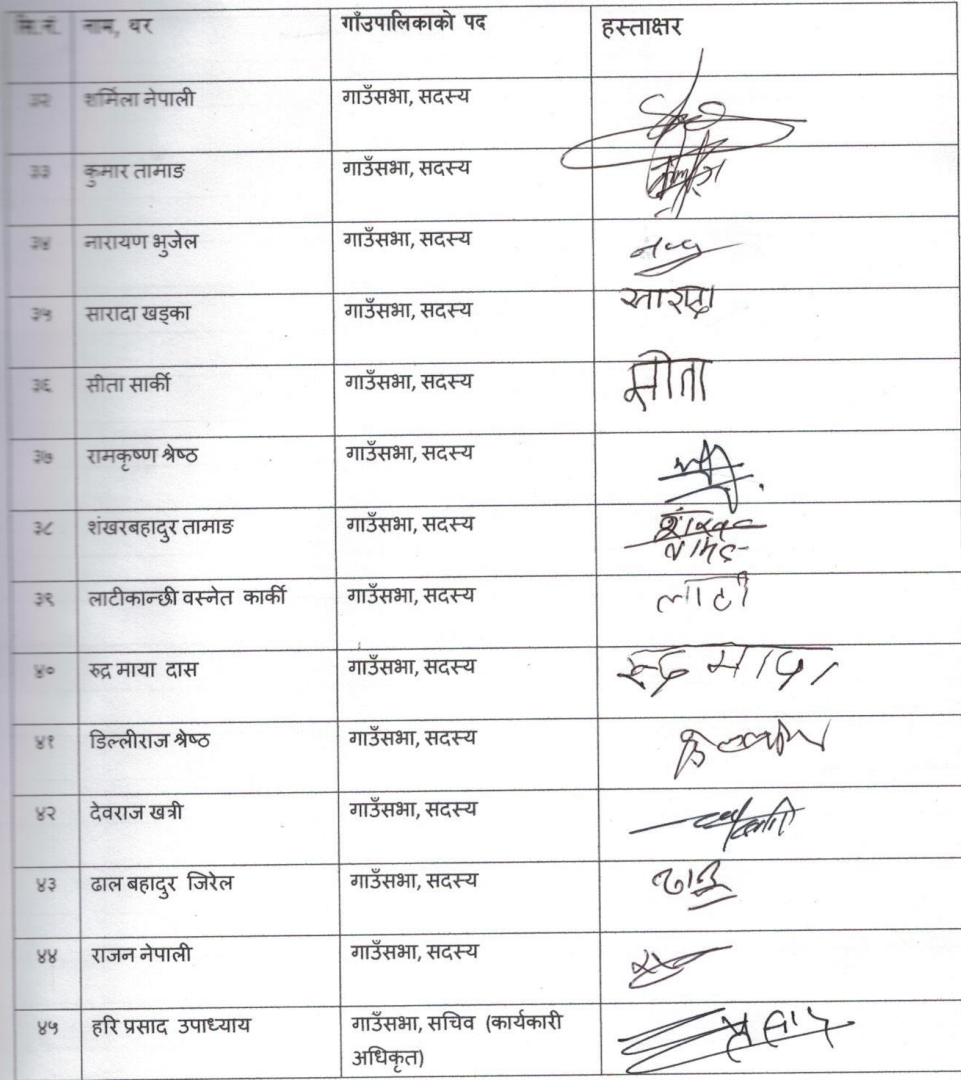 सि.नं. नाम, थर गाँउपालिकाको पद हस्ताक्षर
३२ शर्मिला नेपाली गाउँसभा, सदस्य
३३ कुमार तामाङ गाउँसभा, सदस्य
३४ नारायण भुजेल गाउँसभा, सदस्य
३५ सारादा खड्का गाउँसभा, सदस्य सारादा
३६ सीता सार्की गाउँसभा, सदस्य सीता
३७ रामकृष्ण श्रेष्ठ गाउँसभा, सदस्य
३८ शंखरबहादुर तामाङ गाउँसभा, सदस्य
३९ लाटीकान्छी वस्नेत कार्की गाउँसभा, सदस्य लाटी
४० रुद्र माया दास गाउँसभा, सदस्य रुद्र माया
४१ डिल्लीराज श्रेष्ठ गाउँसभा, सदस्य
४२ देवराज खत्री गाउँसभा, सदस्य
४३ ढाल बहादुर जिरेल गाउँसभा, सदस्य
४४ राजन नेपाली गाउँसभा, सदस्य
४५ हरि प्रसाद उपाध्याय गाउँसभा, सचिव (कार्यकारी
अधिकृत)